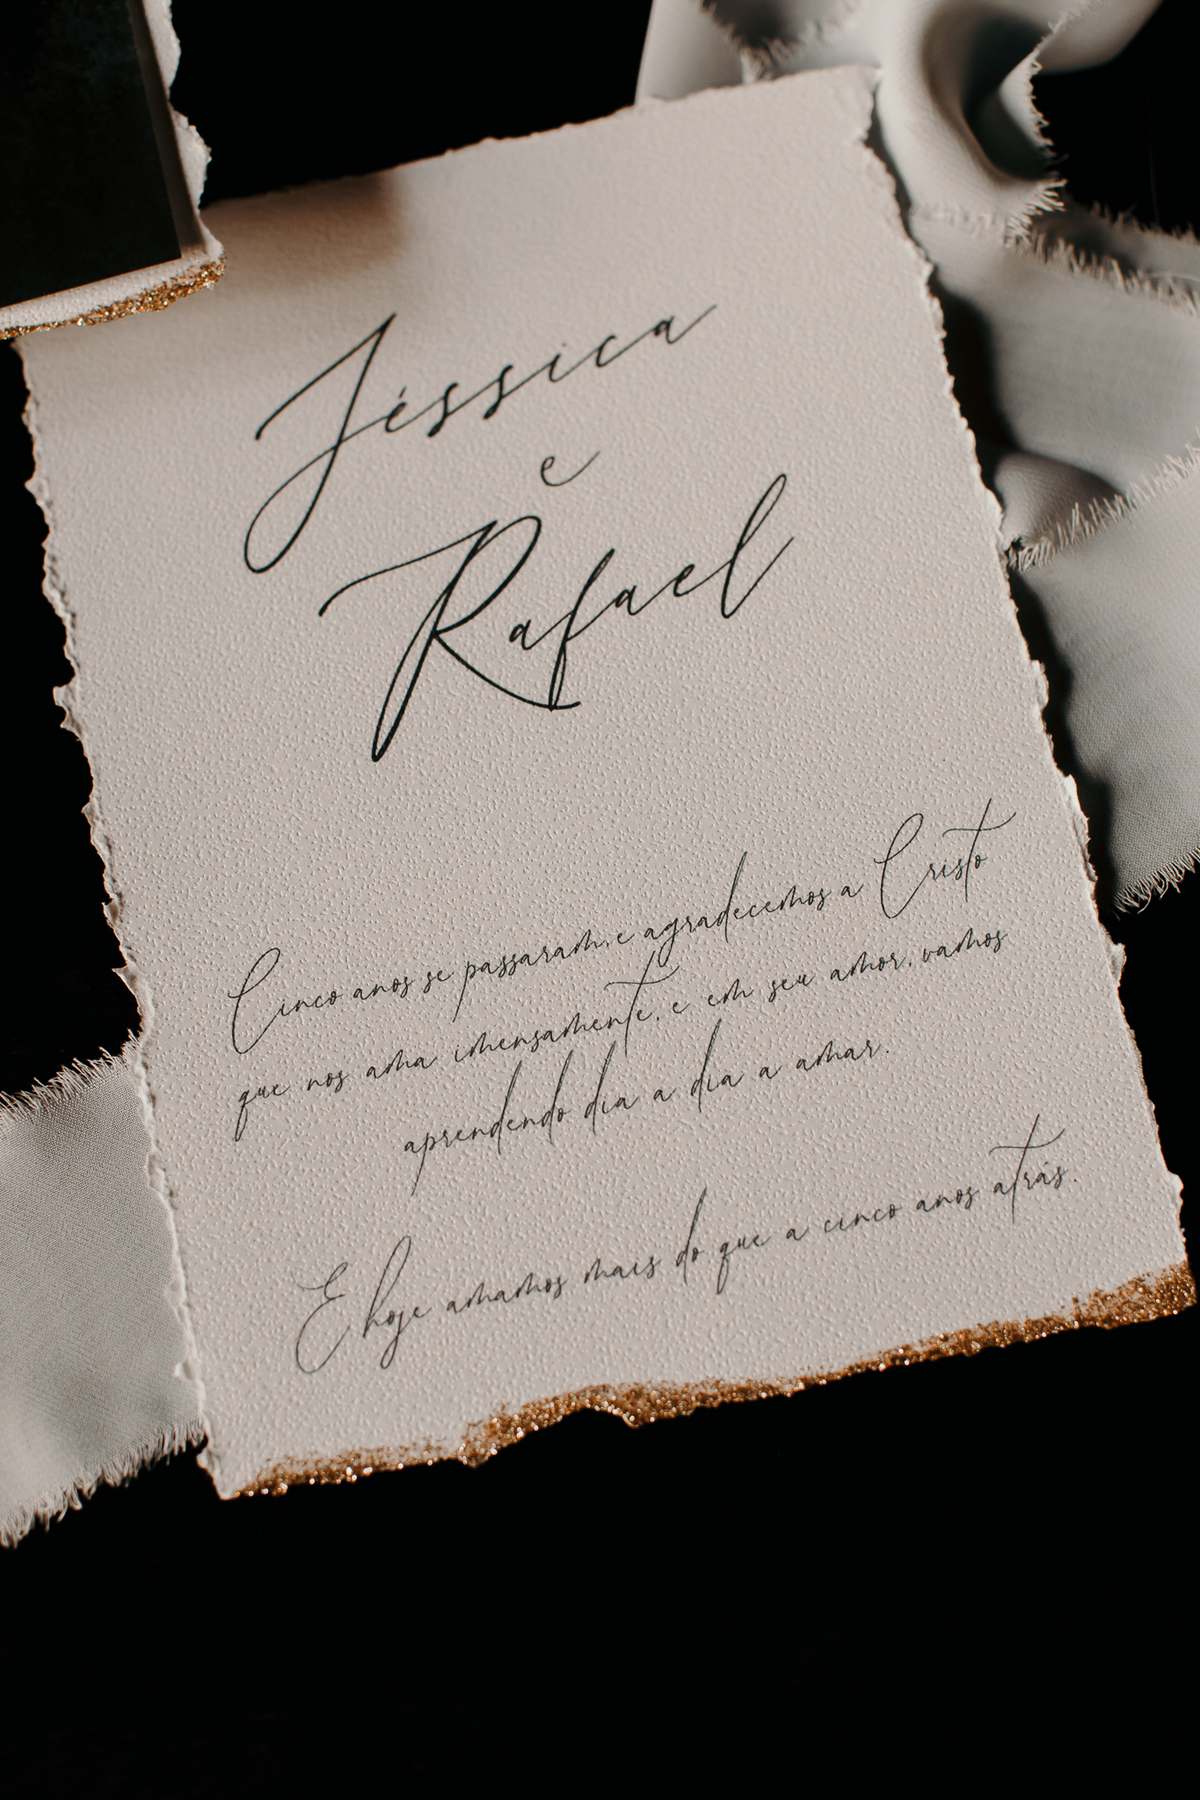 Jéssica
e
Rafael
Cinco anos se passaram, e agradecemos a Cristo
que nos ama imensamente, e em seu amor, vamos
aprendendo dia a dia a amar.
E hoje amamos mais do que a cinco anos atrás.